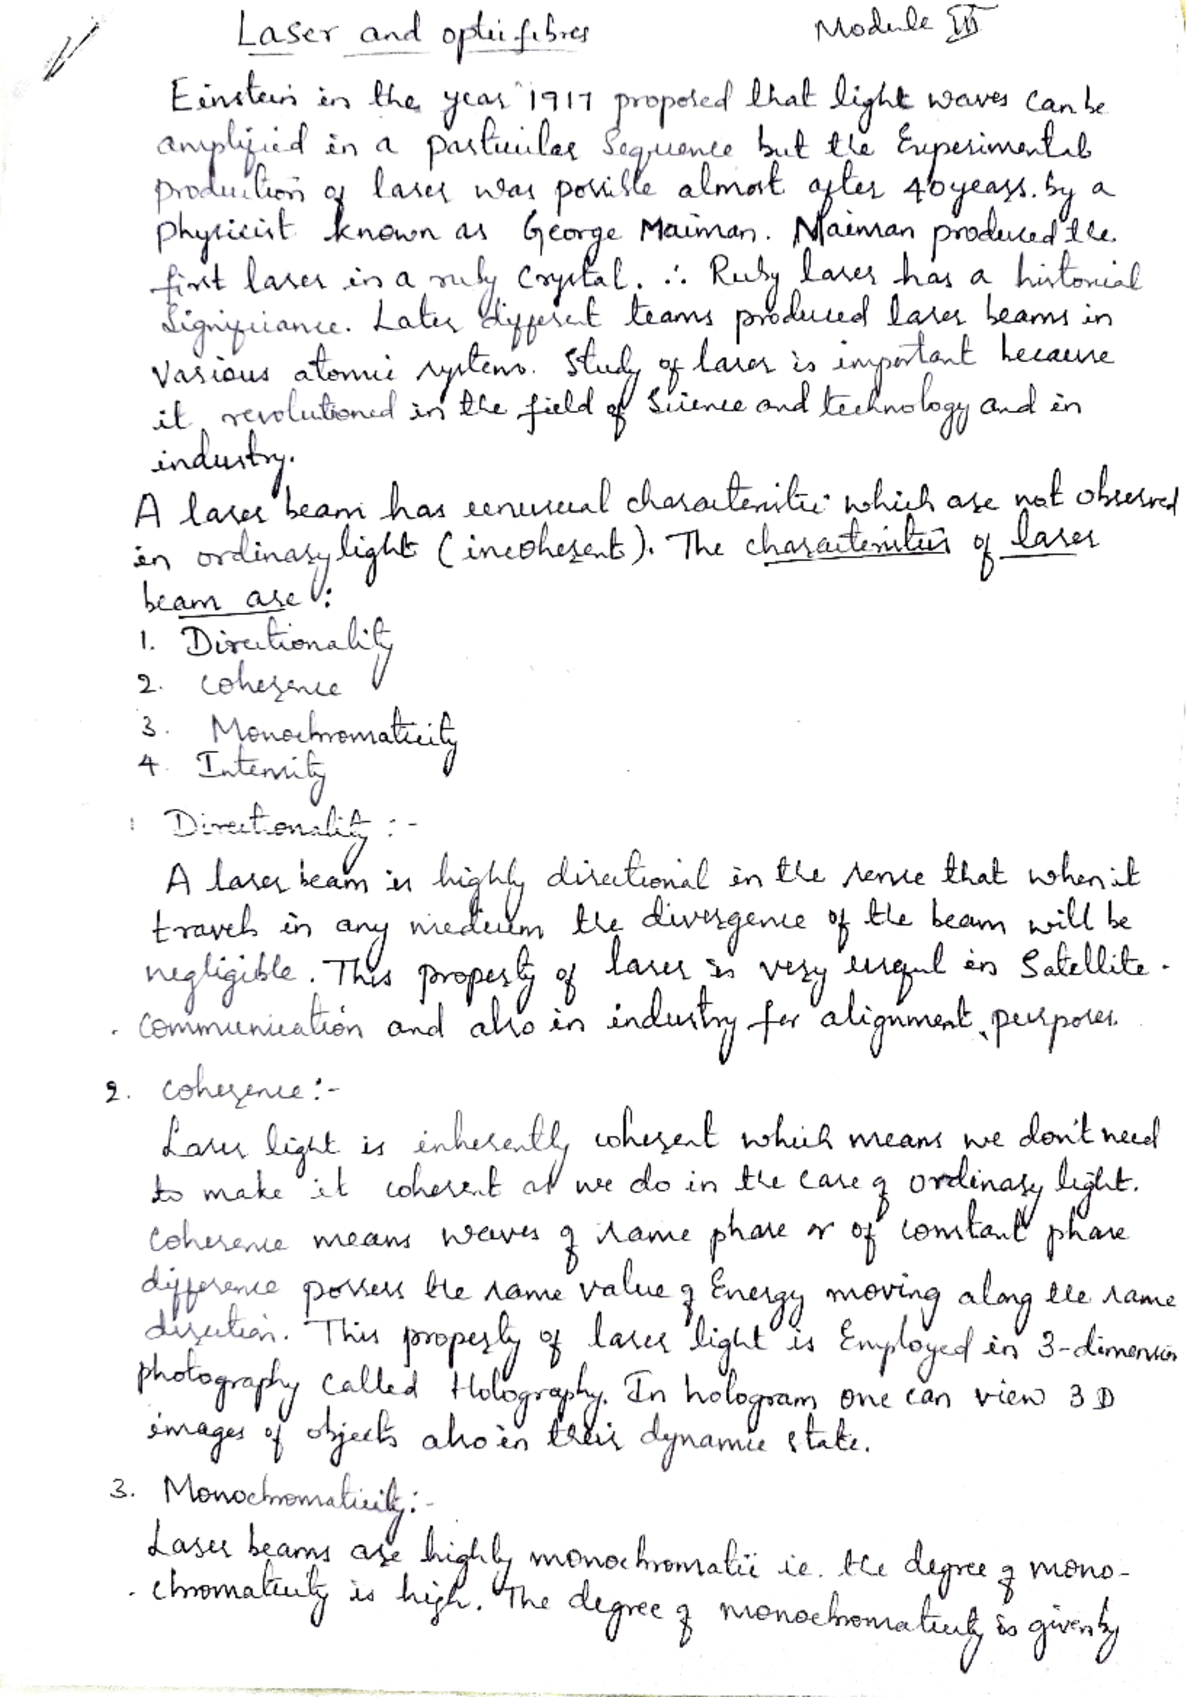 Laser and optic fibres Module III
Einstein in the year 1917 proposed that light waves can be
amplified in a particular Sequence but the Experimental
production of laser was possible almost after 40 years. by a
physicist known as George Maiman. Maiman produced the
first laser in a ruby Crystal. ∴ Ruby laser has a historical
Significance. Later different teams produced laser beams in
various atomic systems. Study of laser is important because
it revolutioned in the field of Science and technology and in
industry.
A laser beam has unusual characteristic which are not observed
in ordinary light (incoherent). The characteristics of laser
beam are :
1. Directionality
2. Coherence
3. Monochromaticity
4. Intensity
1 Directionality :-
A laser beam is highly directional in the sense that when it
travels in any medium the divergence of the beam will be
negligible. This property of laser is very useful in Satellite -
communication and also in industry for alignment purposes.
2. Coherence :-
Laser light is inherently coherent which means we don't need
to make it coherent as we do in the case of ordinary light.
Coherence means waves of same phase or of constant phase
difference possess the same value of Energy moving along the same
direction. This property of laser light is Employed in 3-dimension
photography called Holography. In hologram one can view 3D
images of objects also in their dynamic state.
3. Monochromaticity :-
Laser beams are highly monochromatic ie. the degree of mono-
chromaticity is high. The degree of monochromaticity is given by